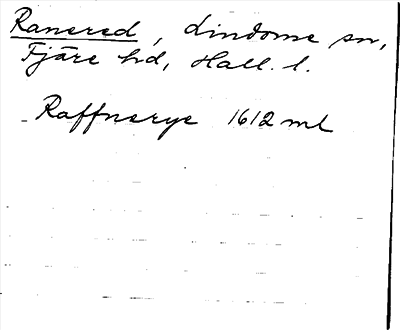 Ranered, Lindome sn,
Fjäre hd, Hall. l.
Raffnerye 1612 ml